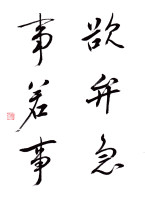 欲急
事若事